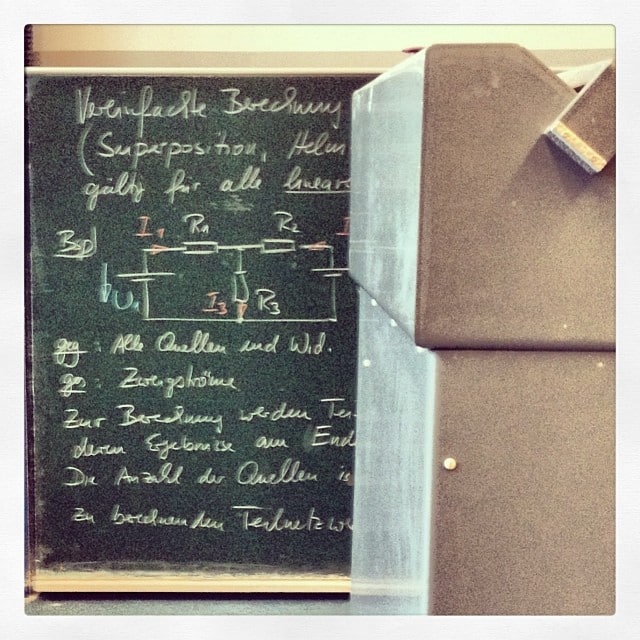 Vereinfachte Berechnung
(Superposition, Helm
gültg für alle linear
Bsp I₁ R₁ R₂ I
U₁ I₃ R₃
geg: Alle Quellen und Wid.
ges: Zweigströme
Zur Berechnung werden Tei
deren Ergebnisse am End
Die Anzahl der Quellen is
zu berechnenden Teilnetzwe